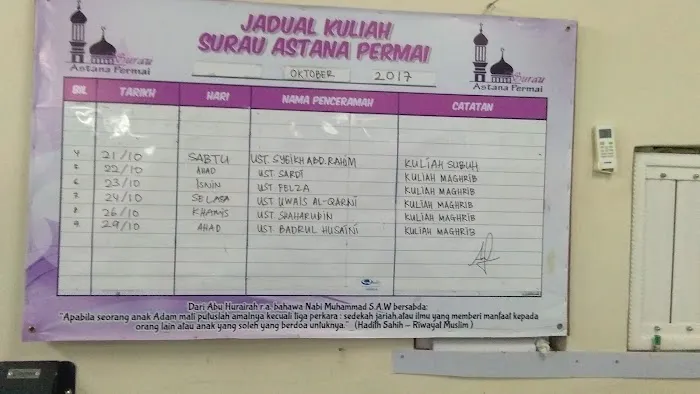 JADUAL KULIAH
SURAU ASTANA PERMAI
Surau
Astana Permai
Surau
Astana Permai
OKTOBER 2017
BIL TARIKH HARI NAMA PENCERAMAH CATATAN
4 21/10 SABTU UST. SYEIKH ABD. RAHIM KULIAH SUBUH
22/10 AHAD UST SARDI KULIAH MAGHRIB
6 23/10 ISNIN UST FELZA KULIAH MAGHRIB
7 24/10 SELASA UST UWAIS AL-QARNI KULIAH MAGHRIB
8 26/10 KHAMIS UST SHAHARUDIN KULIAH MAGHRIB
9 29/10 AHAD UST BADRUL HUSAINI KULIAH MAGHRIB
Dari Abu Hurairah r.a. bahawa Nabi Muhammad S.A.W bersabda:
"Apabila seorang anak Adam mati putuslah amalnya kecuali tiga perkara : sedekah jariah,atau ilmu yang memberi manfaat kepada
orang lain atau anak yang soleh yang berdoa untuknya." (Hadith Sahih - Riwayat Muslim )